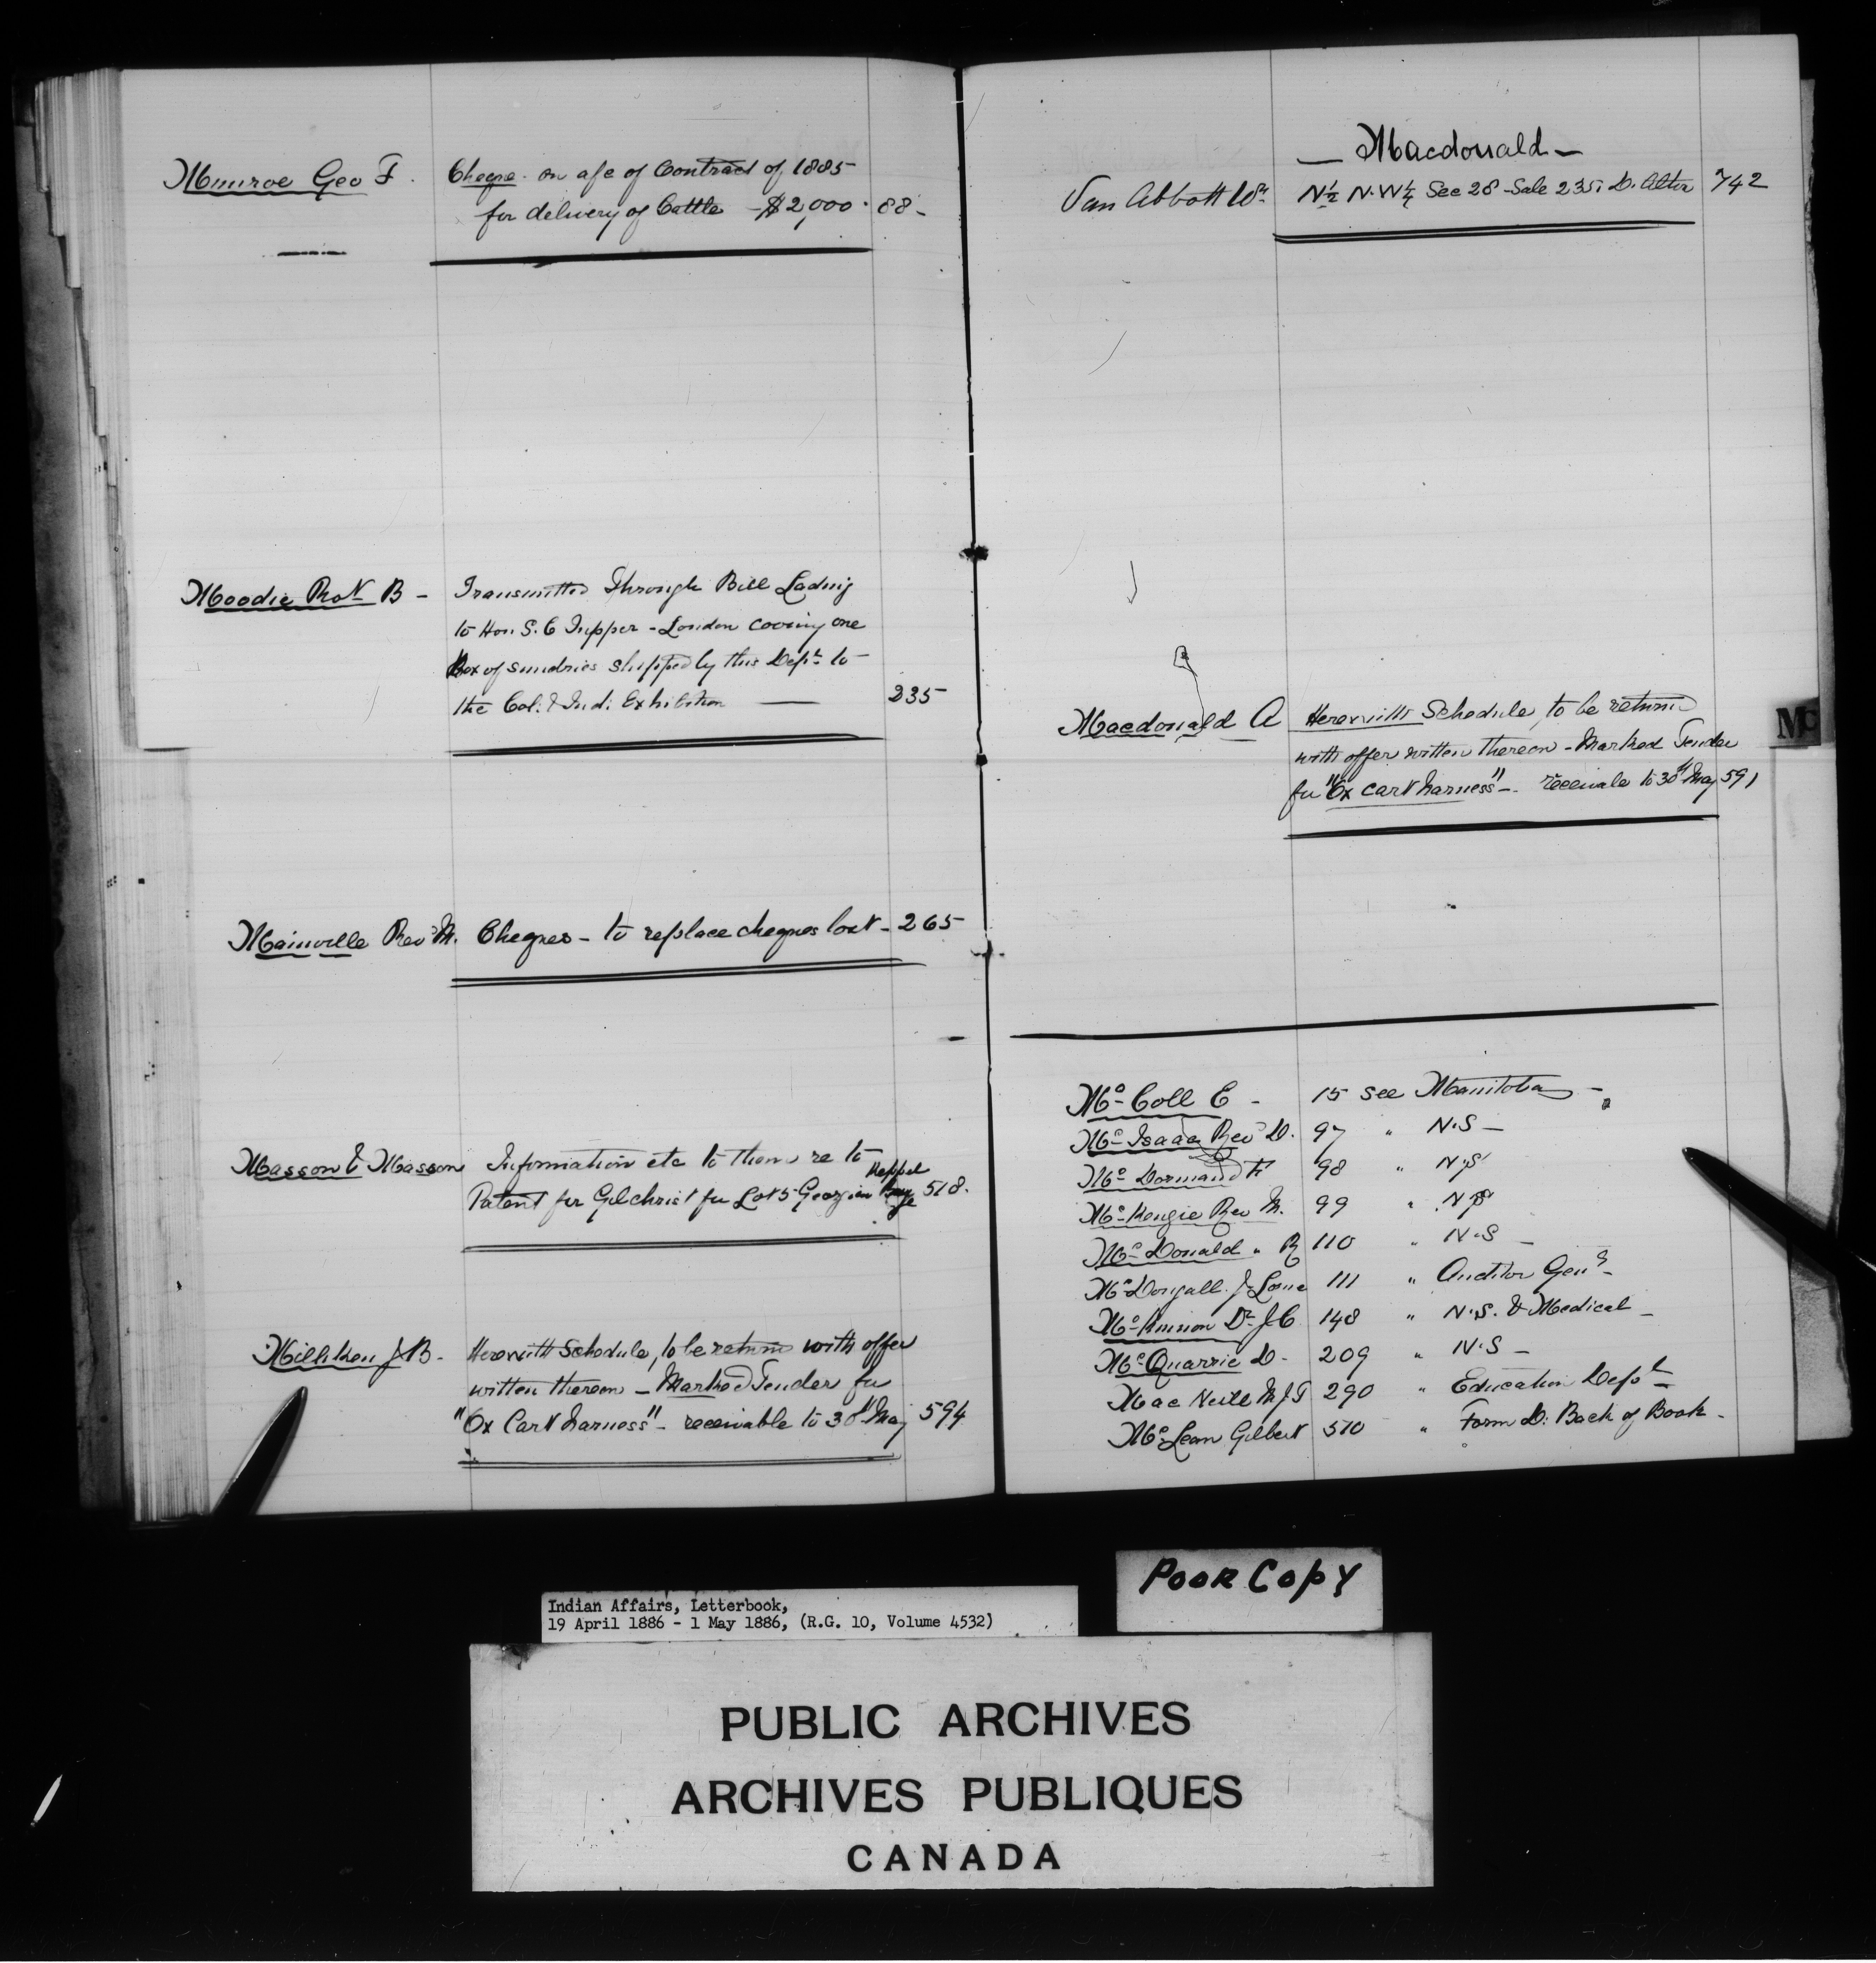 Munroe Geo F. Cheque on a/c of Contract of 1885
for delivery of Cattle - $2,000. 88-
Moodie Robt B - Transmitted Through Bill Lading
to Hon. S. C Tupper - London covering one
Box of sundries shipped by this Dept to
the Col. & Ind. Exhibition — 235
Mainville Rev M. Cheques - to replace cheques lost - 265
Masson & Masson Information etc to them re to
Patent for Gilchrist for Lot 5 Georgian 518.
Keppel
Milliken J B - Herewith Schedule, to be return with offer
written thereon - Marked Tender for
"Ox Cart Harness" - receivable to 30th May 594
— Macdonald —
Van Abbott Wm N½ N.W¼ Sec 28 - Sale 235. D. Alter 742
Macdonald A Herewith Schedule, to be return
with offer written thereon - Marked Tender
for "Ox Cart harness" - receivale to 30th May 591
Mc
Mc Coll E - 15 see Manitoba -
Mc Isaac Rev D. 97 " N.S -
Mc Dormand F 98 " N.S
Mc Kenzie Rev M. 99 " N.S
Mc Donald " R 110 " N.S -
Mc Dougall J Lorne 111 " Auditor Genl -
Mc Kinnon Dr J C 148 " N.S. & Medical -
Mc Quarrie D - 209 " N.S -
Mac Neill M J T 290 " Education Dept
Mc Lean Gilbert 510 " Form D: Back of Book -
Poor Copy
Indian Affairs, Letterbook,
19 April 1886 - 1 May 1886, (R.G. 10, Volume 4532)
PUBLIC ARCHIVES
ARCHIVES PUBLIQUES
CANADA